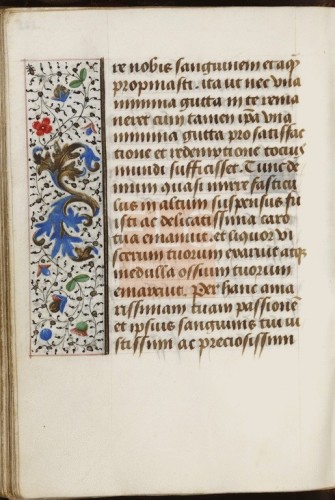 re nobis sanguinem et aq̃
propinasti. ita ut nec vna
minima gutta in te rema
neret cum tamen ip̃a vna
minima gutta pro satisfac
tione et redemptione tocius
mundi suffecisset. Tunc de
mum quasi mirre fascicu
lus in altum suspensus fu
isti ac delicatissima caro
tua emanuit et liquor vi
scerum tuorum exaruit atq̃
medulla ossium tuorum
emarcuit. Per hanc ama
rissimam tuam passionẽ
et ipsius sanguinis tui ui
stissum ac preciosissimi